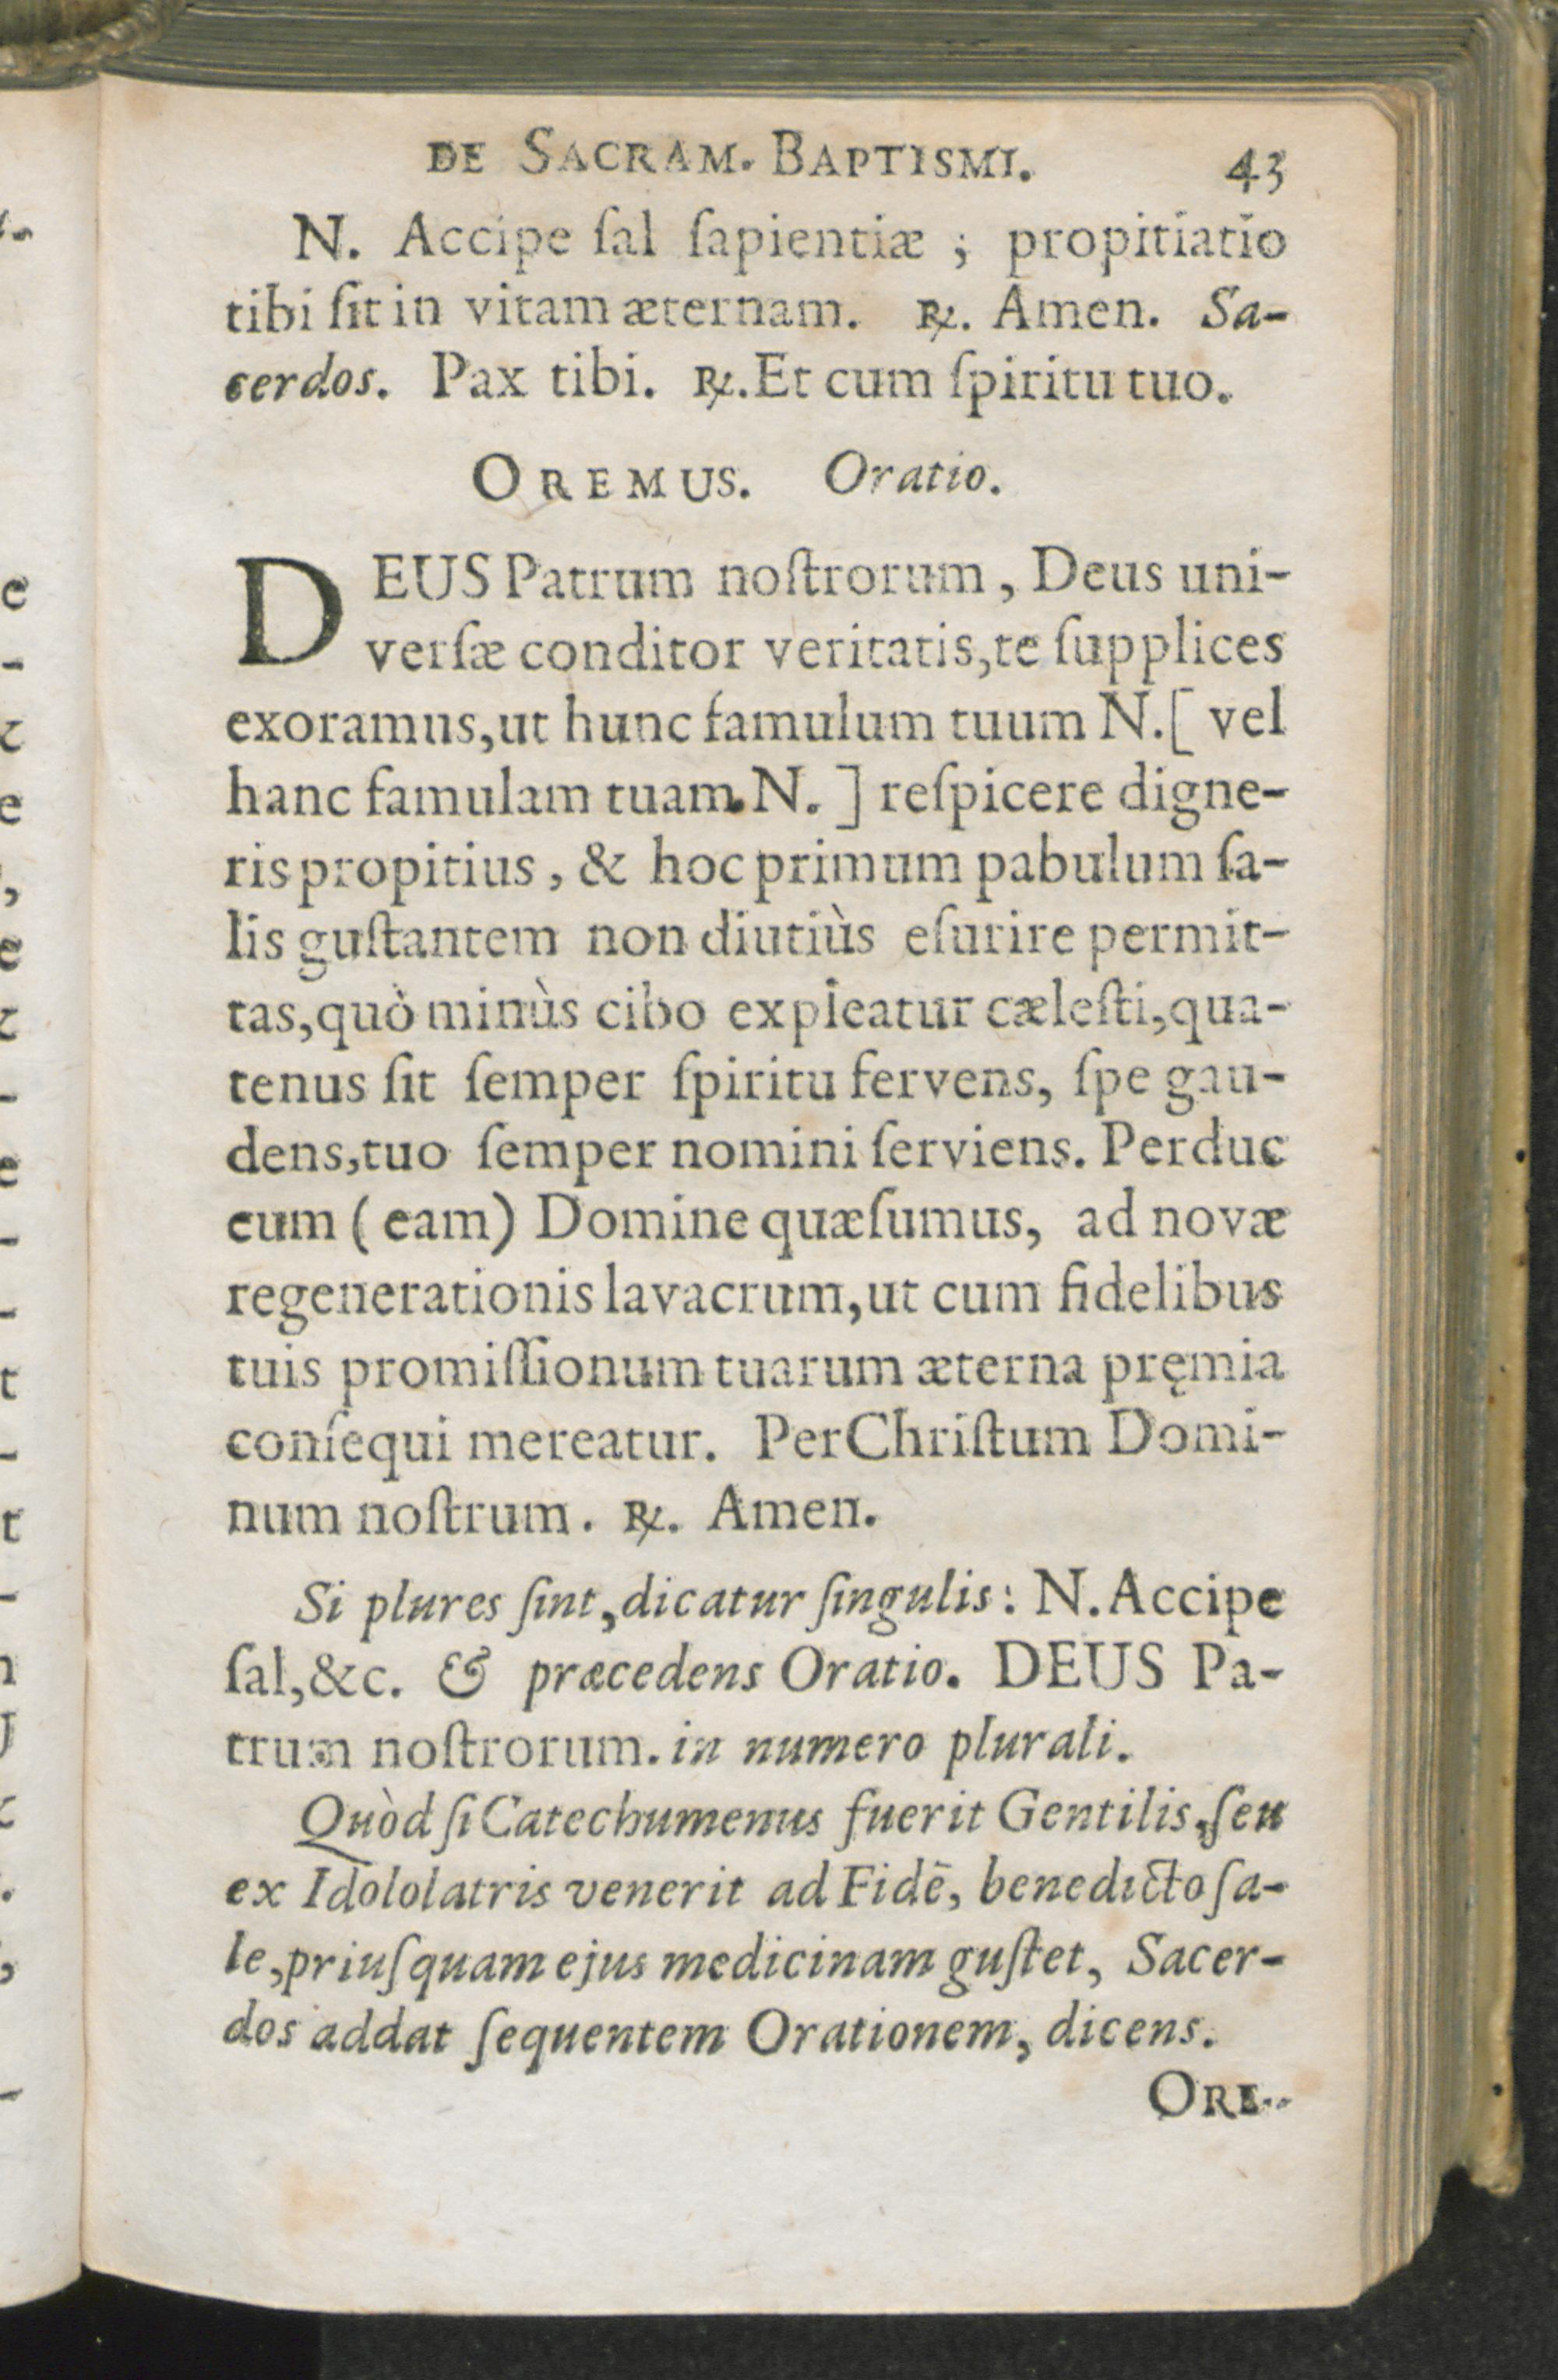 DE SACRAM. BAPTISMI. 43
N. Accipe ſal ſapientiæ ; propitiatio
tibi ſit in vitam æternam. ℟. Amen. Sa-
cerdos. Pax tibi. ℟. Et cum ſpiritu tuo.
OREMUS. Oratio.
DEUS Patrum noſtrorum, Deus uni-
verſæ conditor veritatis, te ſupplices
exoramus, ut hunc famulum tuum N. [ vel
hanc famulam tuam. N. ] reſpicere digne-
ris propitius, & hoc primum pabulum ſa-
lis guſtantem non diutiùs eſurire permit-
tas, quò minùs cibo expleatur cæleſti, qua-
tenus ſit ſemper ſpiritu fervens, ſpe gau-
dens, tuo ſemper nomini ſerviens. Perduc
eum ( eam) Domine quæſumus, ad novæ
regenerationis lavacrum, ut cum fidelibus
tuis promiſſionum tuarum æterna pręmia
conſequi mereatur. Per Chriſtum Domi-
num noſtrum. ℟. Amen.
Si plures ſint, dicatur ſingulis: N. Accipe
ſal, &c. & præcedens Oratio. DEUS Pa-
trum noſtrorum. in numero plurali.
Quòd ſi Catechumenus fuerit Gentilis, ſeu
ex Idololatris venerit ad Fidē, benedicto ſa-
le, priuſquam ejus medicinam guſtet, Sacer-
dos addat ſequentem Orationem, dicens.
ORE-